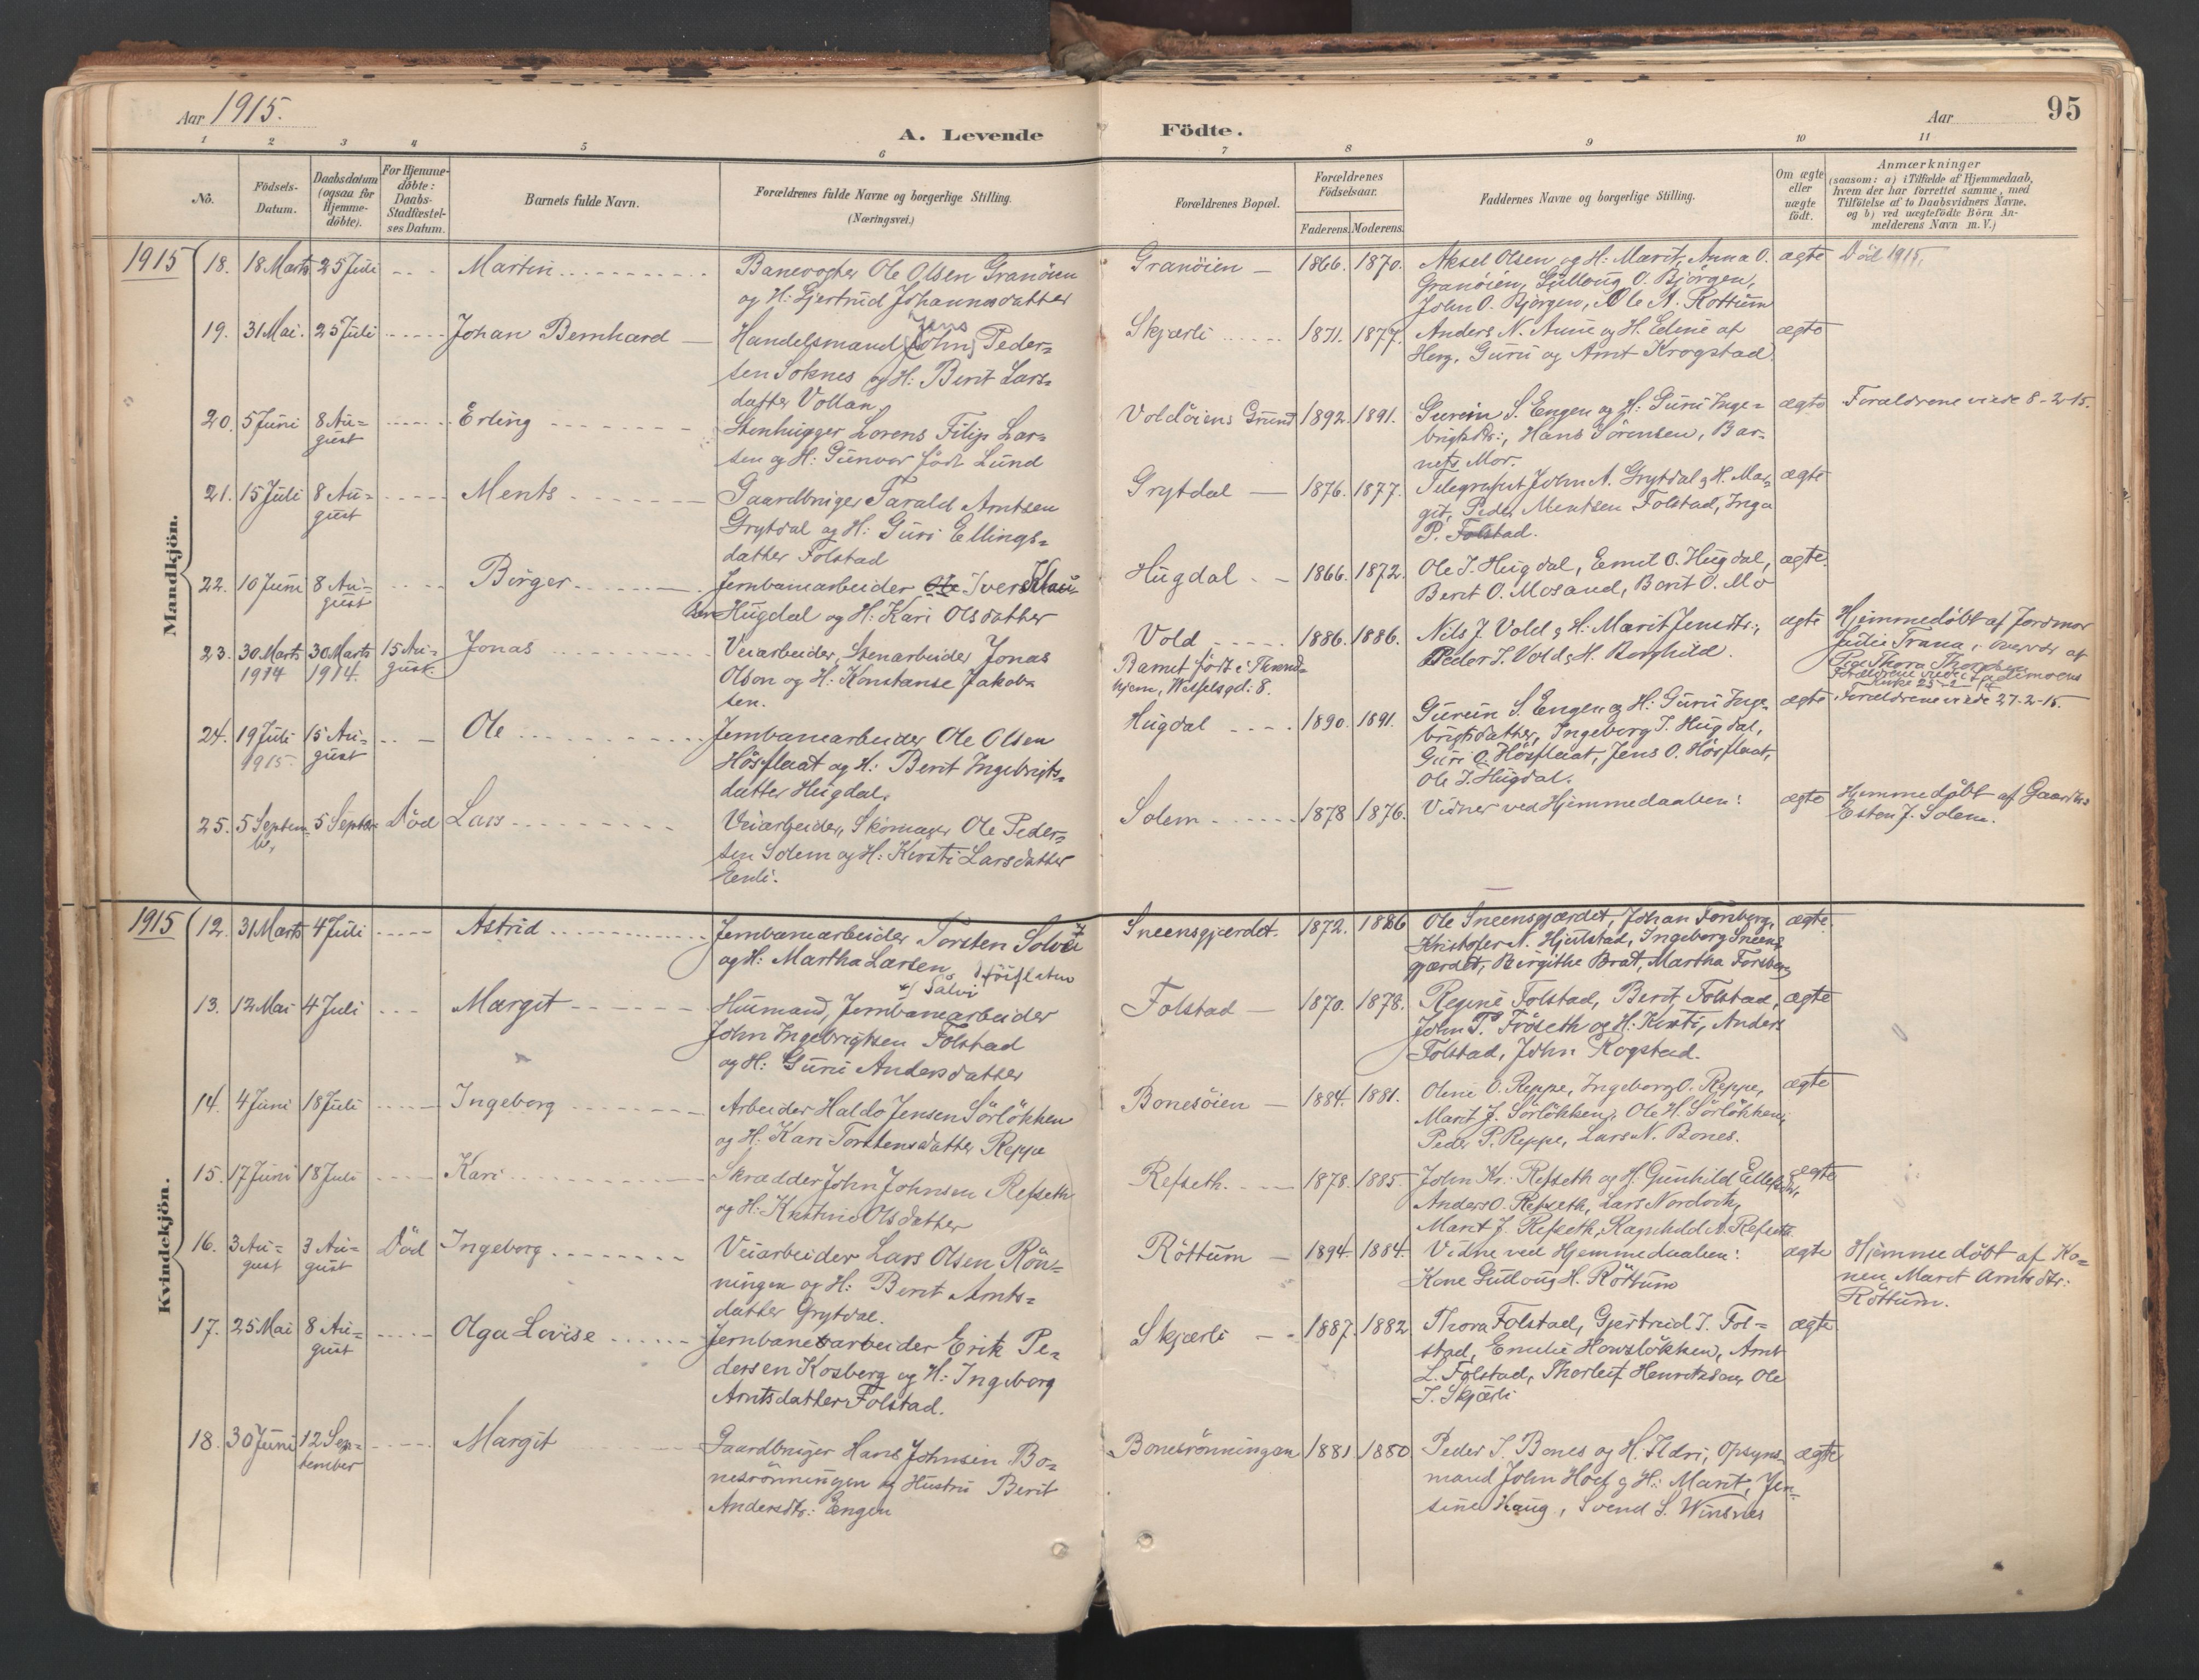 Aar 1915.
A. Levende
Födte.
Aar
95
1 2 3 4 5 6 7 8 9 10 11
No.
Födsels-
Datum.
Daabsdatum
(ogsaa for
Hjemme-
döbte).
For Hjemme-
döbte:
Daabs-
Stadfæstel-
ses Datum.
Barnets fulde Navn.
Forældrenes fulde Navne og borgerlige Stilling.
(Næringsvei.)
Forældrenes Bopæl.
Forældrenes
Födselsaar.
Faderens. Moderens.
Faddernes Navne og borgerlige Stilling.
Om ægte
eller
uægte
födt.
Anmærkninger
(saasom: a) i Tilfælde af Hjemmedaab,
hvem der har forrettet samme, med
Tilföielse af to Daabsvidners Navne,
og b) ved uægtefödte Börn An-
melderens Navn m. V.)
Mandkjön.
1915 18. 18 Marts 25 Juli Martin
Banevogter Ole Olsen Granöien
og H: Gjertrud Johannesdatter
Granöien 1866. 1870.
Aksel Olsen og H: Marit, Anna O.
Granöien, Gulloug O. Bjørgen,
John O. Bjørgen, Ole A. Rottum
ægte Död 1915.
19. 31 Mai. 25 Juli Johan Bernhard
Handelsmand (John) Jens Peder-
sen Soknes og H: Berit Lars-
datter Vollan.
Skjærli 1871. 1877.
Anders N. Aune og H. Edine af
Herg, Guru og Arnt Krogstad
ægte
20. 5 Juni 8 Au-
gust
Erling
Stenhugger Lorens Filip Lar-
sen og H: Gunvor födt Lund
Voldöiens Grund 1892. 1891.
S. Engen og H: Guru Inge-
brigtsdtr:, Hans Sörensen, Bar-
nets Mor.
ægte Forældrene viede 8-2-15.
21. 15 Juli 8 Au-
gust
Ments
Gaardbruger Tarald Arntsen
Grytdal og H: Guri Ellings-
datter Folstad
Grytdal 1876. 1877.
Telegrafist John A. Grytdal & H. Mar-
git, Peder Mentsen Folstad, Inga
P. Folstad.
ægte
22. 10 Juni 8 Au-
gust
Birger
Jernbanearbeider Ole Iver
Hugdal og H: Kari Olsdatter
Hugdal 1866. 1872.
Ole I. Hugdal, Emil O. Hugdal,
Berit O. Mosand, Berit O. Mo
ægte.
23. 30 Marts
1914
30 Marts
1914.
15 Au-
gust.
Jonas
Veiarbeider, Stenarbeider Jonas
Olson og H: Konstanse Jakob-
sen.
Vold
Barnet födt i Thrond-
hjem, Wesselsgd: 8.
1886. 1886.
Nils J. Vold & H: Marit Jensdtr:,
Peder J. Vold & H. Borghild.
ægte
Hjemmedöbt af Jordmor
Julie Trana, af
Thora
Forældrene viede i Lademoens
Kirke
24. 19 Juli
1915.
15 Au-
gust
Ole
Jernbanearbeider Ole Olsen
Hösflaat og H: Berit Ingebrigts-
datter Hugdal.
Hugdal 1890. 1891.
S. Engen og H: Guru Inge-
brigtsdatter, Ingeborg I. Hugdal,
Guri O. Hösflaat, Jens O. Hösflaat,
Ole I. Hugdal.
ægte Forældrene viede 27-2-15.
25. 5 Septem-
br.
5 Septbr Död Lars
Veiarbeider, Skomager Ole Peder-
sen Solem og H: Kirsti Larsdatter
Enli.
Solem 1878 1876.
Vidner ved Hjemmedaaben:
ægte
Hjemmedöbt af Gaardbr.
Esten J. Solem.
Kvindekjön.
1915 12. 31 Marts 4 Juli Astrid
Jernbanearbeider Torsten Solvei
og H: Martha Larsen
Salvi
Sneensgjærdet. 1872. 1886
Ole Sneensgjærdet, Johan Forsberg,
Kristofer N. Hjulstad, Ingeborg Sneens-
gjærdet, Bergithe Brat, Martha Forsberg
ægte.
13. 12 Mai 4 Juli Margit
Husmand, Jernbanearbeider
John Ingebrigtsen Folstad
og H: Guru Andersdatter
Folstad 1870. 1878.
Regine Folstad, Berit Folstad,
John P. Fröseth og H: Kirsti, Anders
Folstad, John Rogstad.
ægte
14. 4 Juni 18 Juli Ingeborg
Arbeider Haldo Jensen Sörlökken
og H: Kari Torstensdatter Reppe
Bonesöien 1884. 1881.
Oline O. Reppe, Ingeborg O. Reppe,
Marit J. Sörlökken, Ole H. Sörlökken,
Peder P. Reppe, Lars N. Bones.
ægte
15. 17 Juni 18 Juli Kari
Skrædder John Johnsen Refseth
og H: Kristine Olsdatter
Refseth. 1878. 1885.
John Kr. Refseth og H. Gunhild
Anders O. Refseth, Lars Nordvik,
Marit J. Refseth, Ragnhild A. Refseth
ægte
16. 3 Au-
gust
3 Au-
gust
Död Ingeborg
Veiarbeider Lars Olsen Rön-
ningen og H: Berit Arnts-
datter Grytdal.
Röttum 1894. 1884.
Vidne ved Hjemmedaaben:
Kone Gulloug H. Röttum
ægte
Hjemmedöbt af Ko-
nen Marit Arntsdtr:
Röttum.
17. 25 Mai 8 Au-
gust
Olga Lovise
Jernbanearbeider Erik Pe-
dersen Kosberg og H: Ingeborg
Arntsdatter Folstad.
Skjærli 1887. 1882
Thora Folstad, Gjertrud I. Fol-
stad, Emilie Howslökken, Arnt
L. Folstad, Thorleif Henriksen, Ole
I. Skjærli
ægte
18. 30 Juni 12 Sep-
tember
Margit
Gaardbruger Hans Johnsen Bo-
nesrönningen og Hustru Berit
Andersdtr: Engen
Bonesrönningen 1881 1880
Peder I. Bones og H. Ildri, Opsyns-
mand John Hoel & H: Marit, Jen-
sine Haug, Svend S. Winsnes
ægte